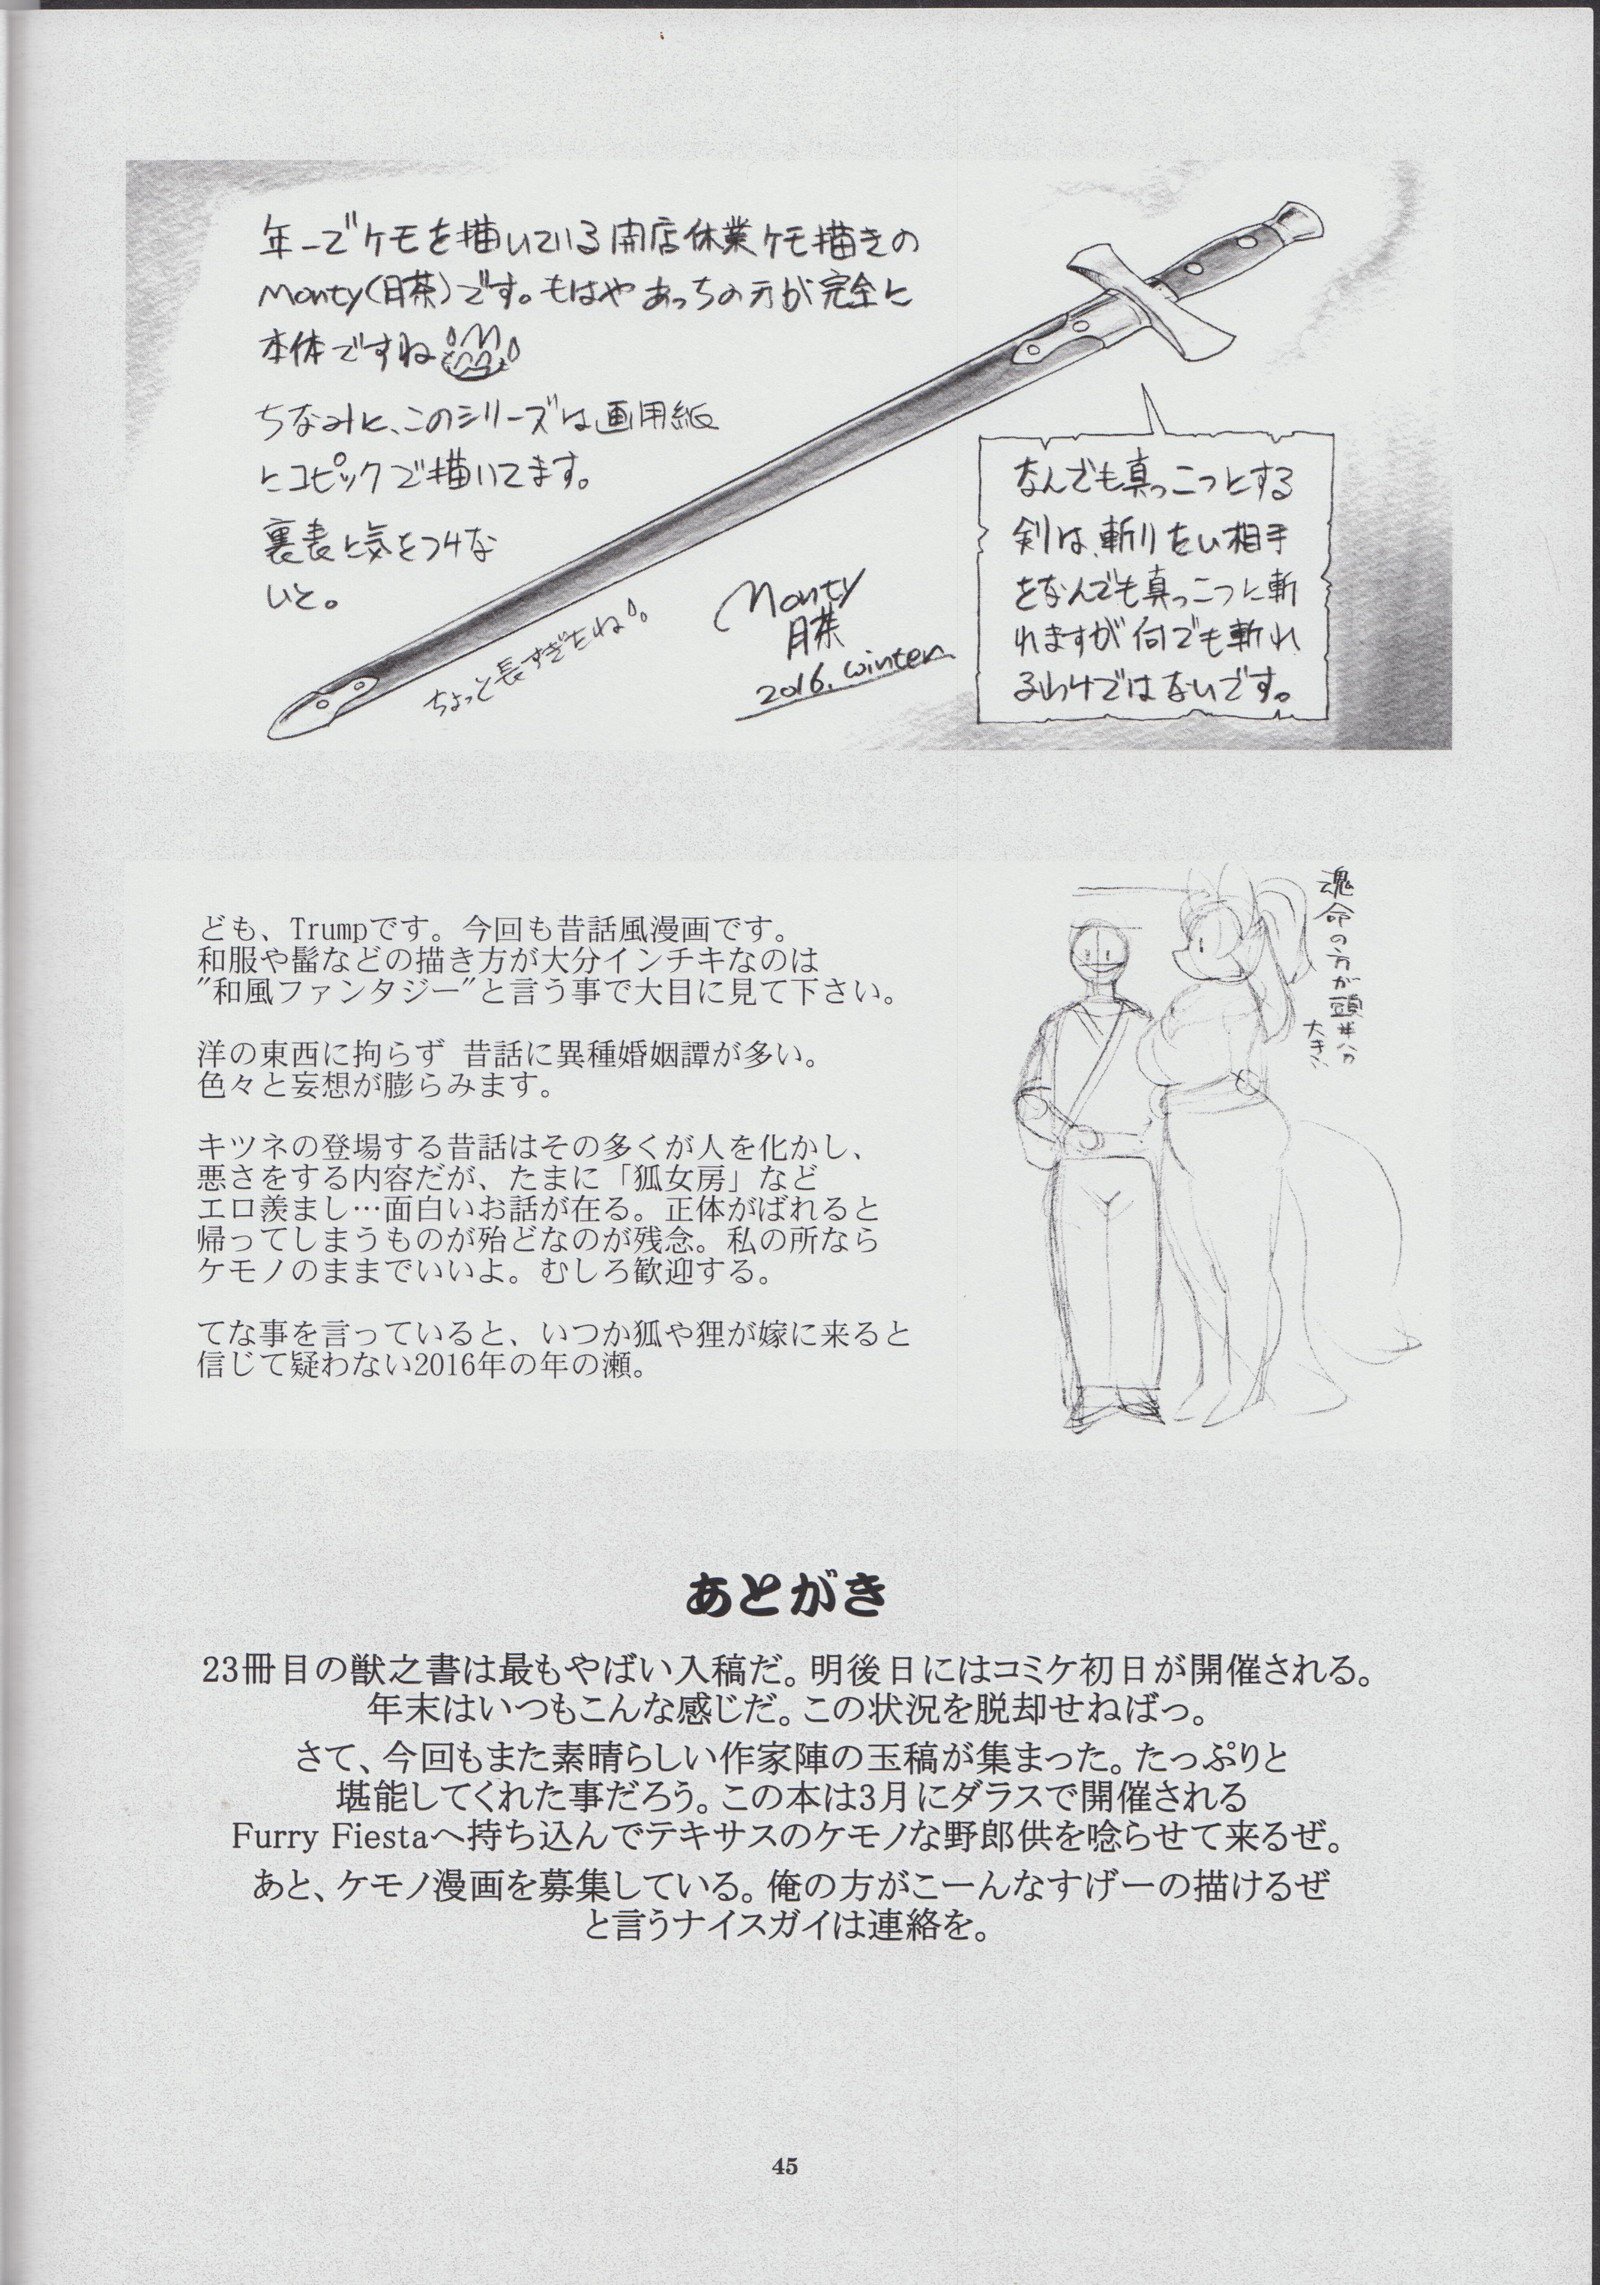 年一でケモを描いている開店休業ケモ描きの
Monty(月茶)です。もはやあっちの方が完全に
本体ですね
ちなみに、このシリーズは画用紙
にコピックで描いてます。
裏表に気をつけな
いと。
ちょっと長すぎたね
Monty
月茶
2016. winter
なんでも真っこつとする
剣は、斬りたい相手
をなんでも真っこつに斬
れますが何でも斬れ
るわけではないです。
ども、Trumpです。今回も昔話風漫画です。
和服や髷などの描き方が大分インチキなのは
"和風ファンタジー"と言う事で大目に見て下さい。
洋の東西に拘らず 昔話に異種婚姻譚が多い。
色々と妄想が膨らみます。
キツネの登場する昔話はその多くが人を化かし、
悪さをする内容だが、たまに「狐女房」など
エロ羨まし…面白いお話が在る。正体がばれると
帰ってしまうものが殆どなのが残念。私の所なら
ケモノのままでいいよ。むしろ歓迎する。
てな事を言っていると、いつか狐や狸が嫁に来ると
信じて疑わない2016年の年の瀬。
魂命の方が頭
大きい
あとがき
23冊目の獣之書は最もやばい入稿だ。明後日にはコミケ初日が開催される。
年末はいつもこんな感じだ。この状況を脱却せねばっ。
さて、今回もまた素晴らしい作家陣の玉稿が集まった。たっぷりと
堪能してくれた事だろう。この本は3月にダラスで開催される
Furry Fiestaへ持ち込んでテキサスのケモノな野郎供を唸らせて来るぜ。
あと、ケモノ漫画を募集している。俺の方がこーんなすげーの描けるぜ
と言うナイスガイは連絡を。
45